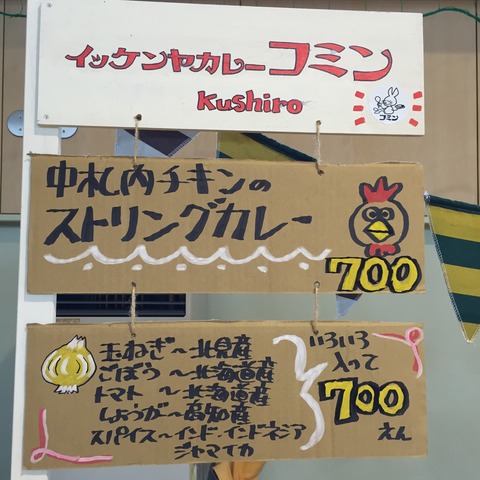 イッケンヤカレーコミン
Kushiro
コミン
中札内チキンの
ストリングカレー
700
玉ねぎ〜北見産
ごぼう〜北海道産
トマト〜北海道産
しょうが〜高知産
スパイス〜インド、インドネシア
ジャマイカ
いろいろ
入って
700
えん